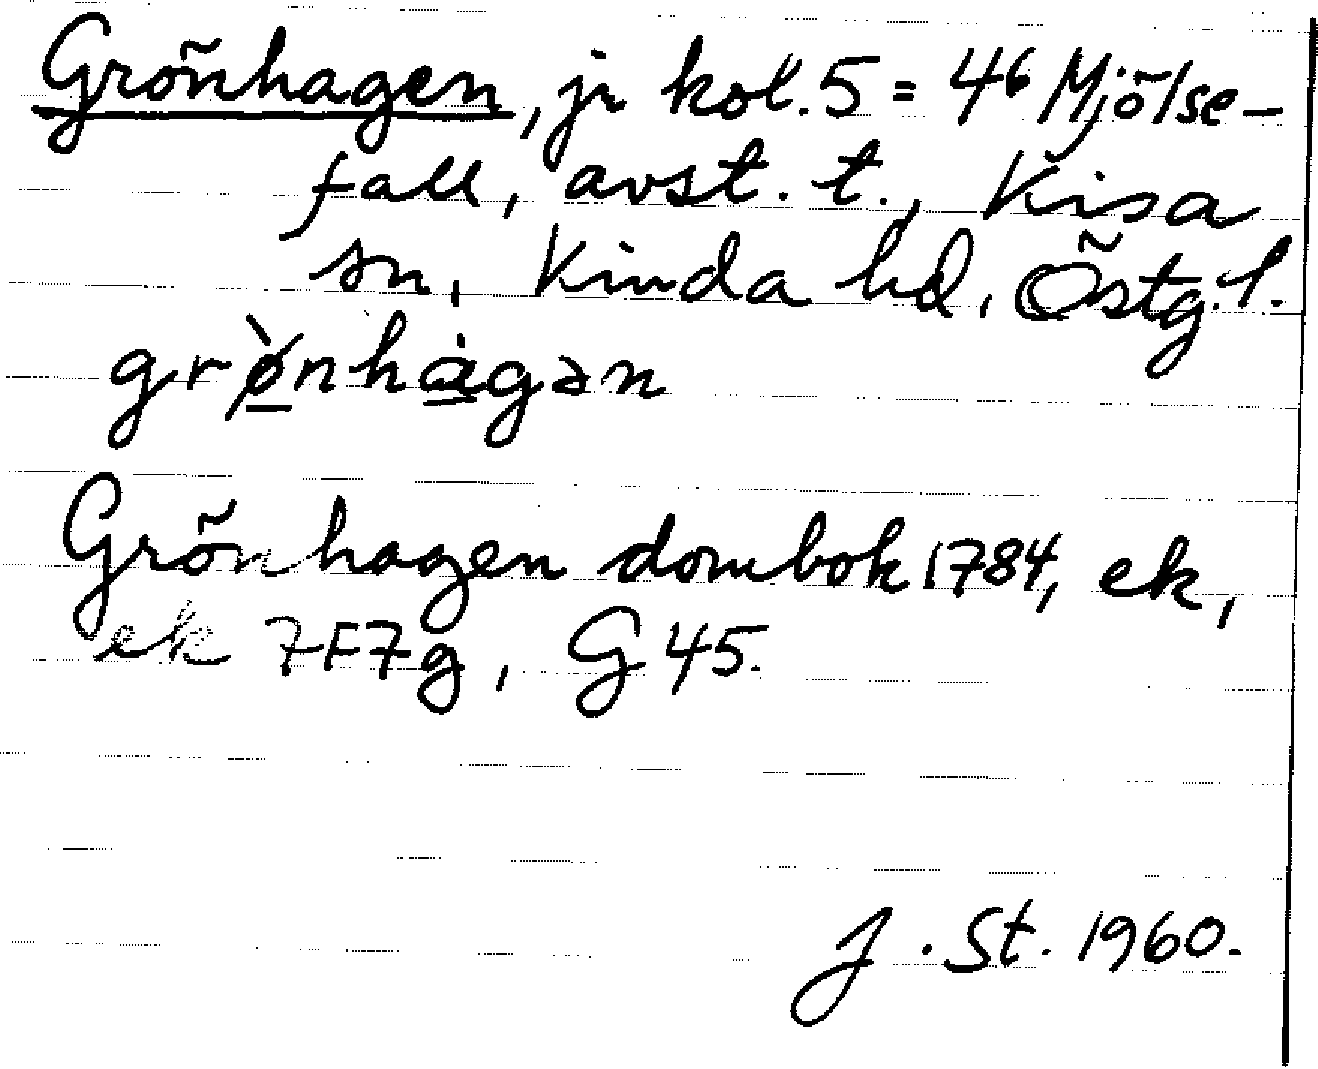 Grönhagen, jr kol. 5 = 4⁶ Mjölse-
fall, avst. t., Kisa
sn, Kinda hd, Östg. l.
grø̀nhàgən
Grönhagen dombok 1784, ek,
ek 7F7g, G 45.
J. St. 1960.